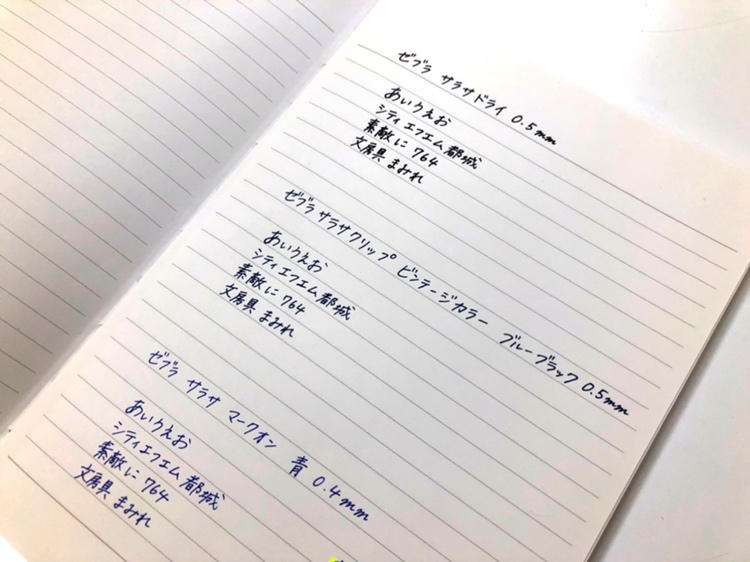 ゼブラ サラサドライ 0.5mm
あいうえお
シティエフエム都城
素敵に764
文房具まみれ
ゼブラサラサクリップ ビンテージカラー ブルーブラック 0.5mm
あいうえお
シティエフエム都城
素敵に764
文房具まみれ
ゼブラ サラサ マークオン 青 0.4mm
あいうえお
シティエフエム都城
素敵に764
文房具まみれ